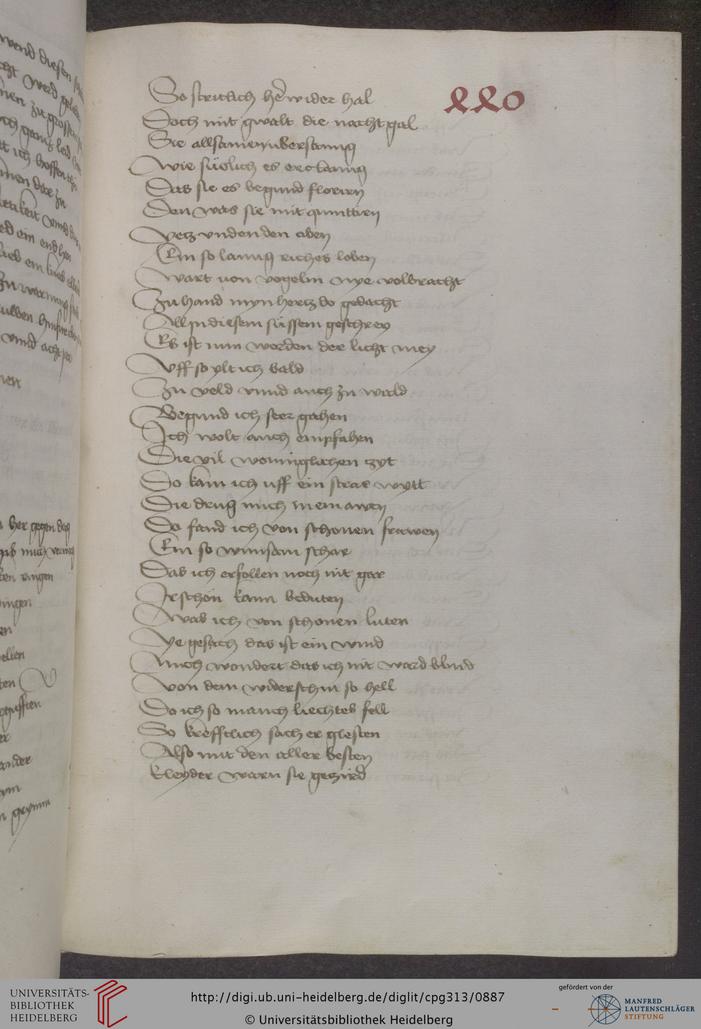 440
So stritlich her wider hal
Doch mit gwalt die nachtgal
Sie allsamen vbersanng
Wie süslich es erclanng
Das sie es begund florien
Den was sie mit quintien
Yetz vnden den oben
Ein so lanng riches loben
Wart von vogelin nye volbracht
Zu hand myn hertz do gedacht
All in diesem süssem geschrey
Es ist nun worden der licht mey
Vff so ylt ich bald
Zu veld vnnd auch zu wald
Begund ich ser gahen
Ich wolt auch empfahen
Die vil wonniglichen zyt
Do kam ich vff ein stras wytt
Die drug mich in ein awen
Do fand ich von schonen frawen
Ein so winsam schar
Das ich erfollen noch nit gar
Ir schön kann beduten
Was ich von schonen luten
Ye gesach das ist ein wind
Mich wondert das ich nit ward blind
Von dem widerschin so hell
Do ich so manch liechtes fell
So krefftlich sach er glesten
Also mit den aller besten
Kleyder warn sie gezird
wend diesen
vnnd acht
her gegen das
ken ringen
ander
UNIVERSITÄTS-
BIBLIOTHEK
HEIDELBERG
http://digi.ub.uni-heidelberg.de/diglit/cpg313/0887
© Universitätsbibliothek Heidelberg
gefördert von der
MANFRED
LAUTENSCHLÄGER
STIFTUNG